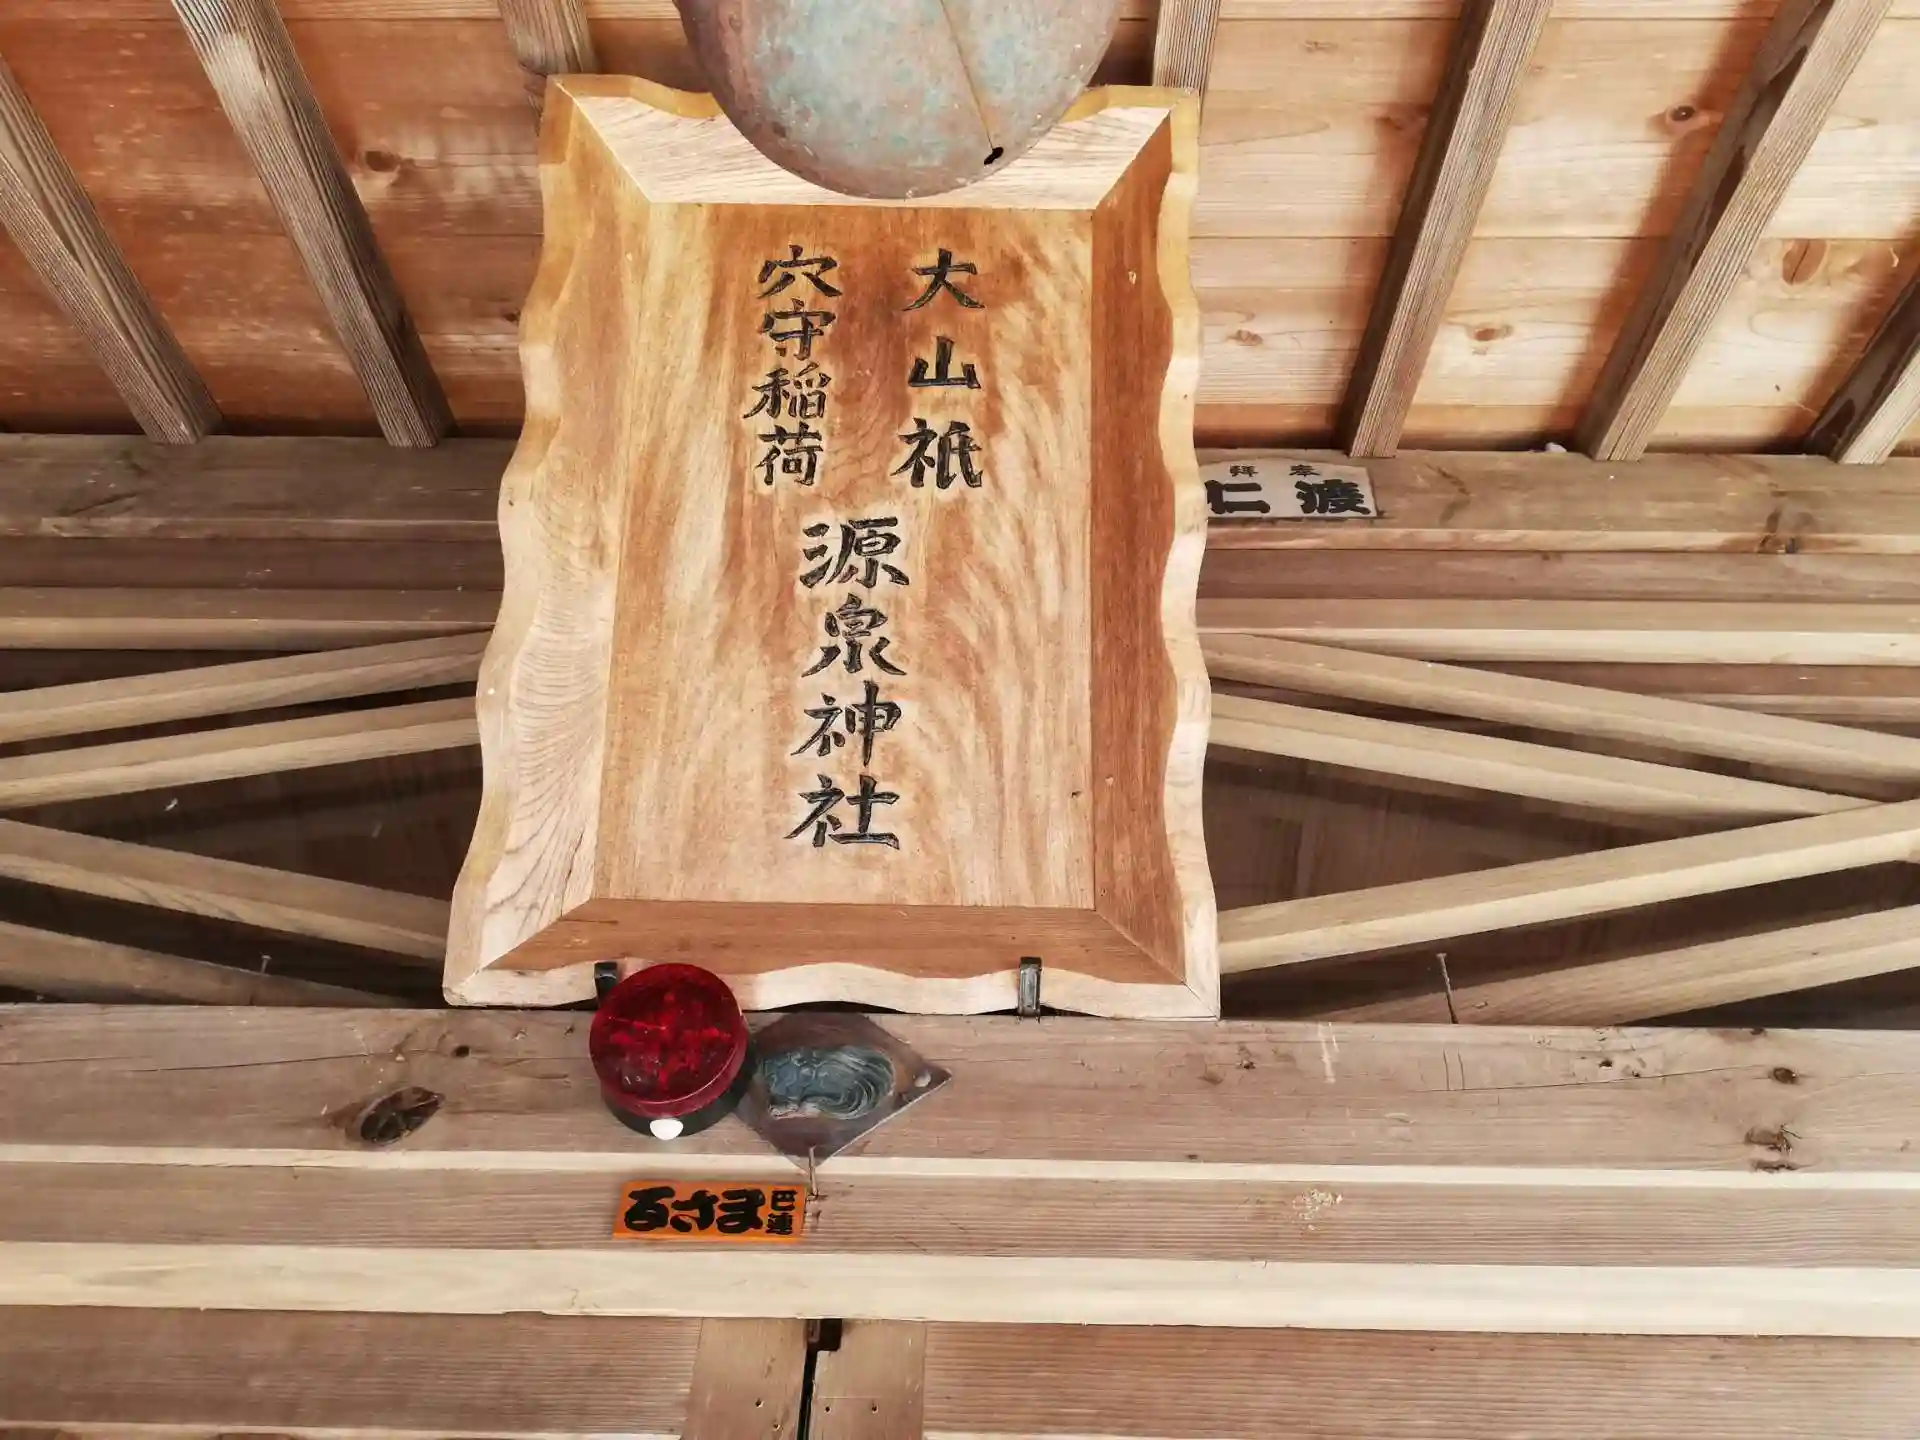 大山祇
穴守稲荷
源泉神社
奉拝
渡仁
るさま
巴連